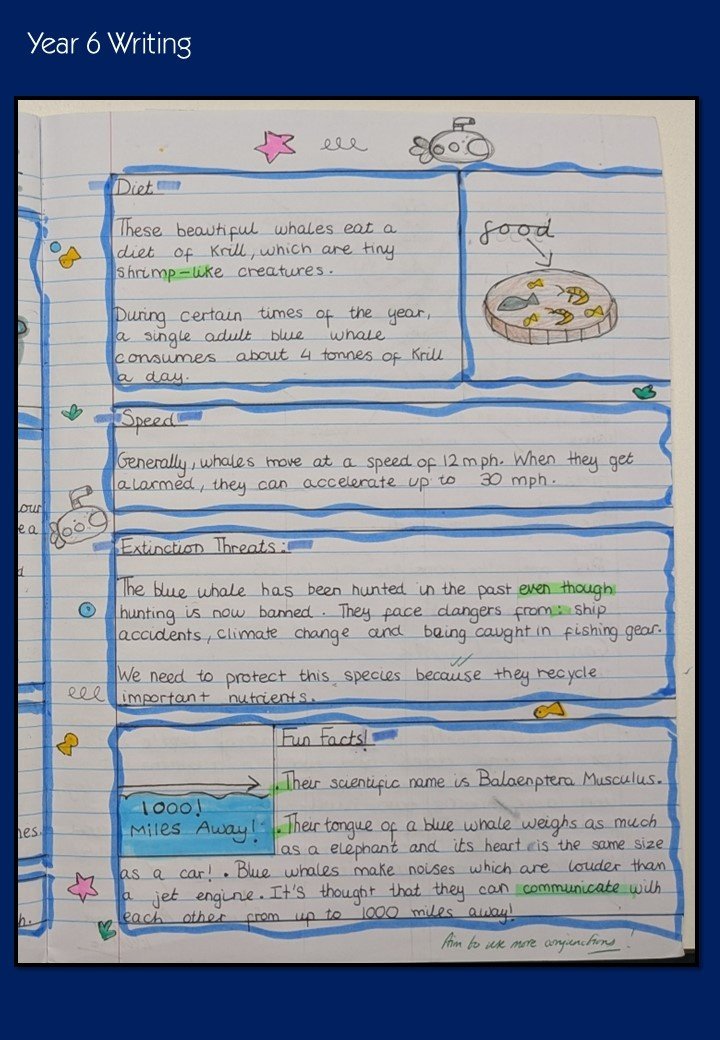 Year 6 Writing
Diet
These beautiful whales eat a
diet of Krill, which are tiny
shrimp-like creatures.
During certain times of the year,
a single adult blue whale
consumes about 4 tonnes of Krill
a day.
food
Speed
Generally, whales move at a speed of 12 mph. When they get
alarmed, they can accelerate up to 30 mph.
Extinction Threats:
The blue whale has been hunted in the past even though
hunting is now banned. They face dangers from: ship
accidents, climate change and being caught in fishing gear.
We need to protect this species because they recycle
important nutrients.
Fun Facts!
1000!
Miles Away!
. Their scientific name is Balaenptera Musculus.
. Their tongue of a blue whale weighs as much
as a elephant and its heart is the same size
as a car! . Blue whales make noises which are louder than
a jet engine. It's thought that they can communicate with
each other from up to 1000 miles away!
Aim to use more conjunctions!
our
ea
d
nes.
h.